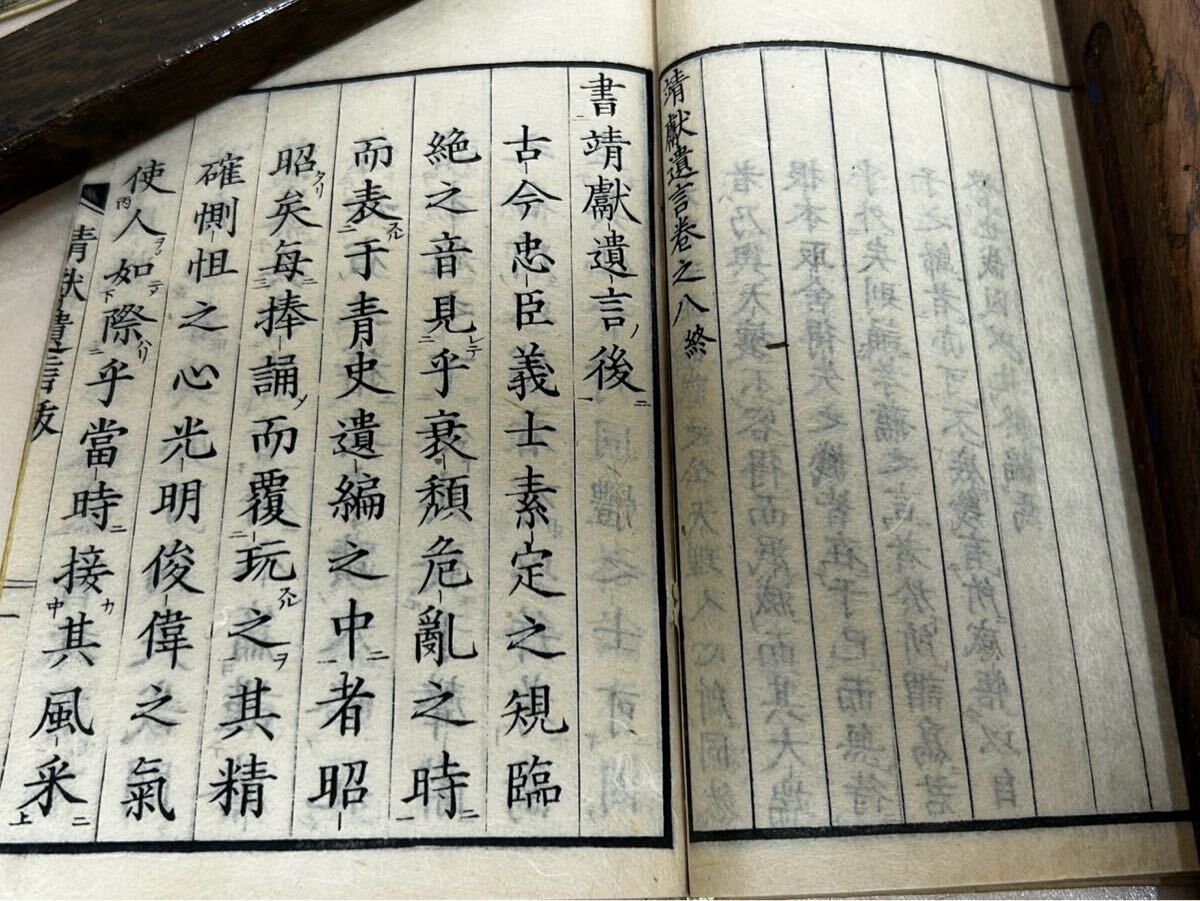 靖獻遺言卷之八終
書靖獻遺言後
古今忠臣義士素定之規臨
絶之音見乎衰頽危亂之時
而表于青史遺編之中者昭
昭矣每捧誦而覆玩之其精
確惻怛之心光明俊偉之氣
使人如際乎當時接其風采
靖獻遺言跋